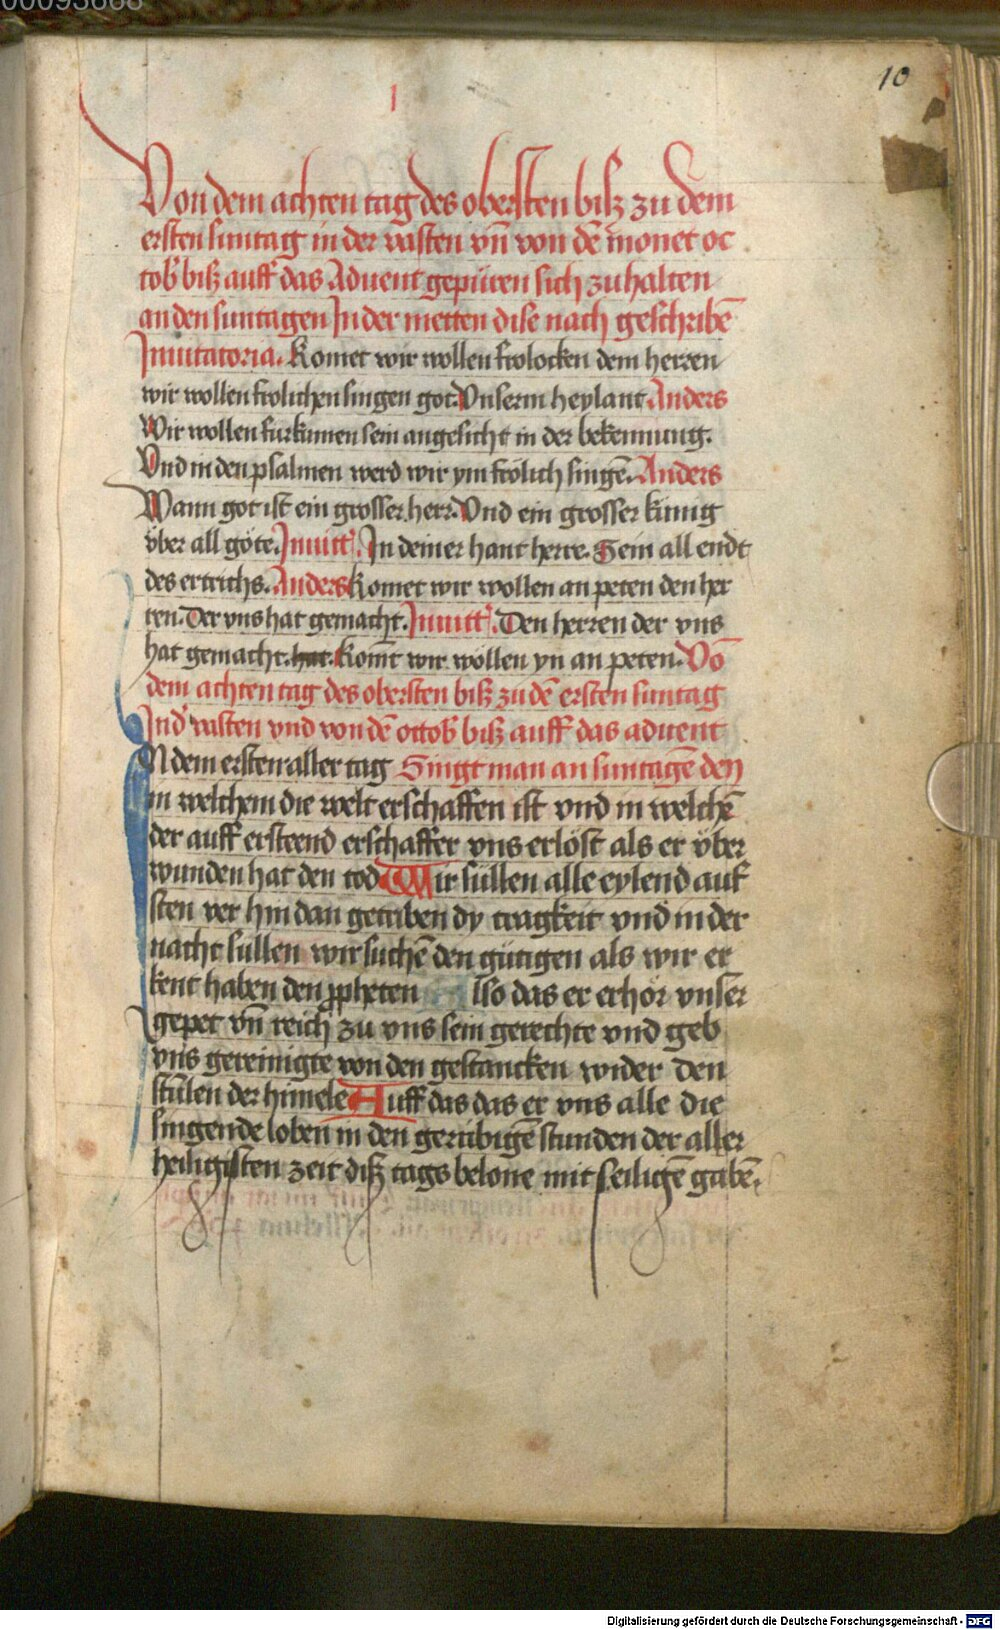 00093668
10
1
Von dem achten tag des obersten bisz zu dem
ersten suntag in der vasten vn̄ von dē monet oc
tob' bisz auff das Aduent gepüren sich zu halten
an den suntagen In der metten dise nach geschribē
Inuitatoria. Komet wir wollen frolocken dem herren
wir wollen frolichen singen got. Vnserm heylant Anders
Wir wollen furkumen sein angesicht in der bekennung.
Vnd in den psalmen werd wir ym frölich singē. Anders
Wann got ist ein grosser herr. Vnd ein grosser künig
über all göte. Inuitt'. In deiner hant herre. Sein all endt
des ertrichs. Anders Komet wir wollen an peten den her
ren. Der vns hat gemacht. Inuitt'. Den herren der vns
hat gemacht. hat. Kom̄t wir wöllen yn an peten. Vō
dem achten tag des obersten bisz zu dē ersten suntag
In d' vasten vnd von dē octob' bisz auff das aduent
N dem ersten aller tag Singt man an suntagē den
in welchem die welt erschaffen ist vnd in welchē
der auff ersteend erschaffer vns erlöst als er über
wunden hat den tod Wir süllen alle eylend auf
sten ver hin dan getriben dy tragkeit vnd in der
nacht süllen wir suchē den gütigen als wir er
kent haben den ppheten lso das er erhör vnser
gepet vn̄ reich zu vns sein gerechte vnd geb
vns gereinigte von den gestancken wider den
stülen der himele Auff das das er vns alle die
singende loben in den gerübigē stunden der aller
heiligisten zeit disz tags belone mit seiligē gabē.
Digitalisierung gefördert durch die Deutsche Forschungsgemeinschaft - DFG